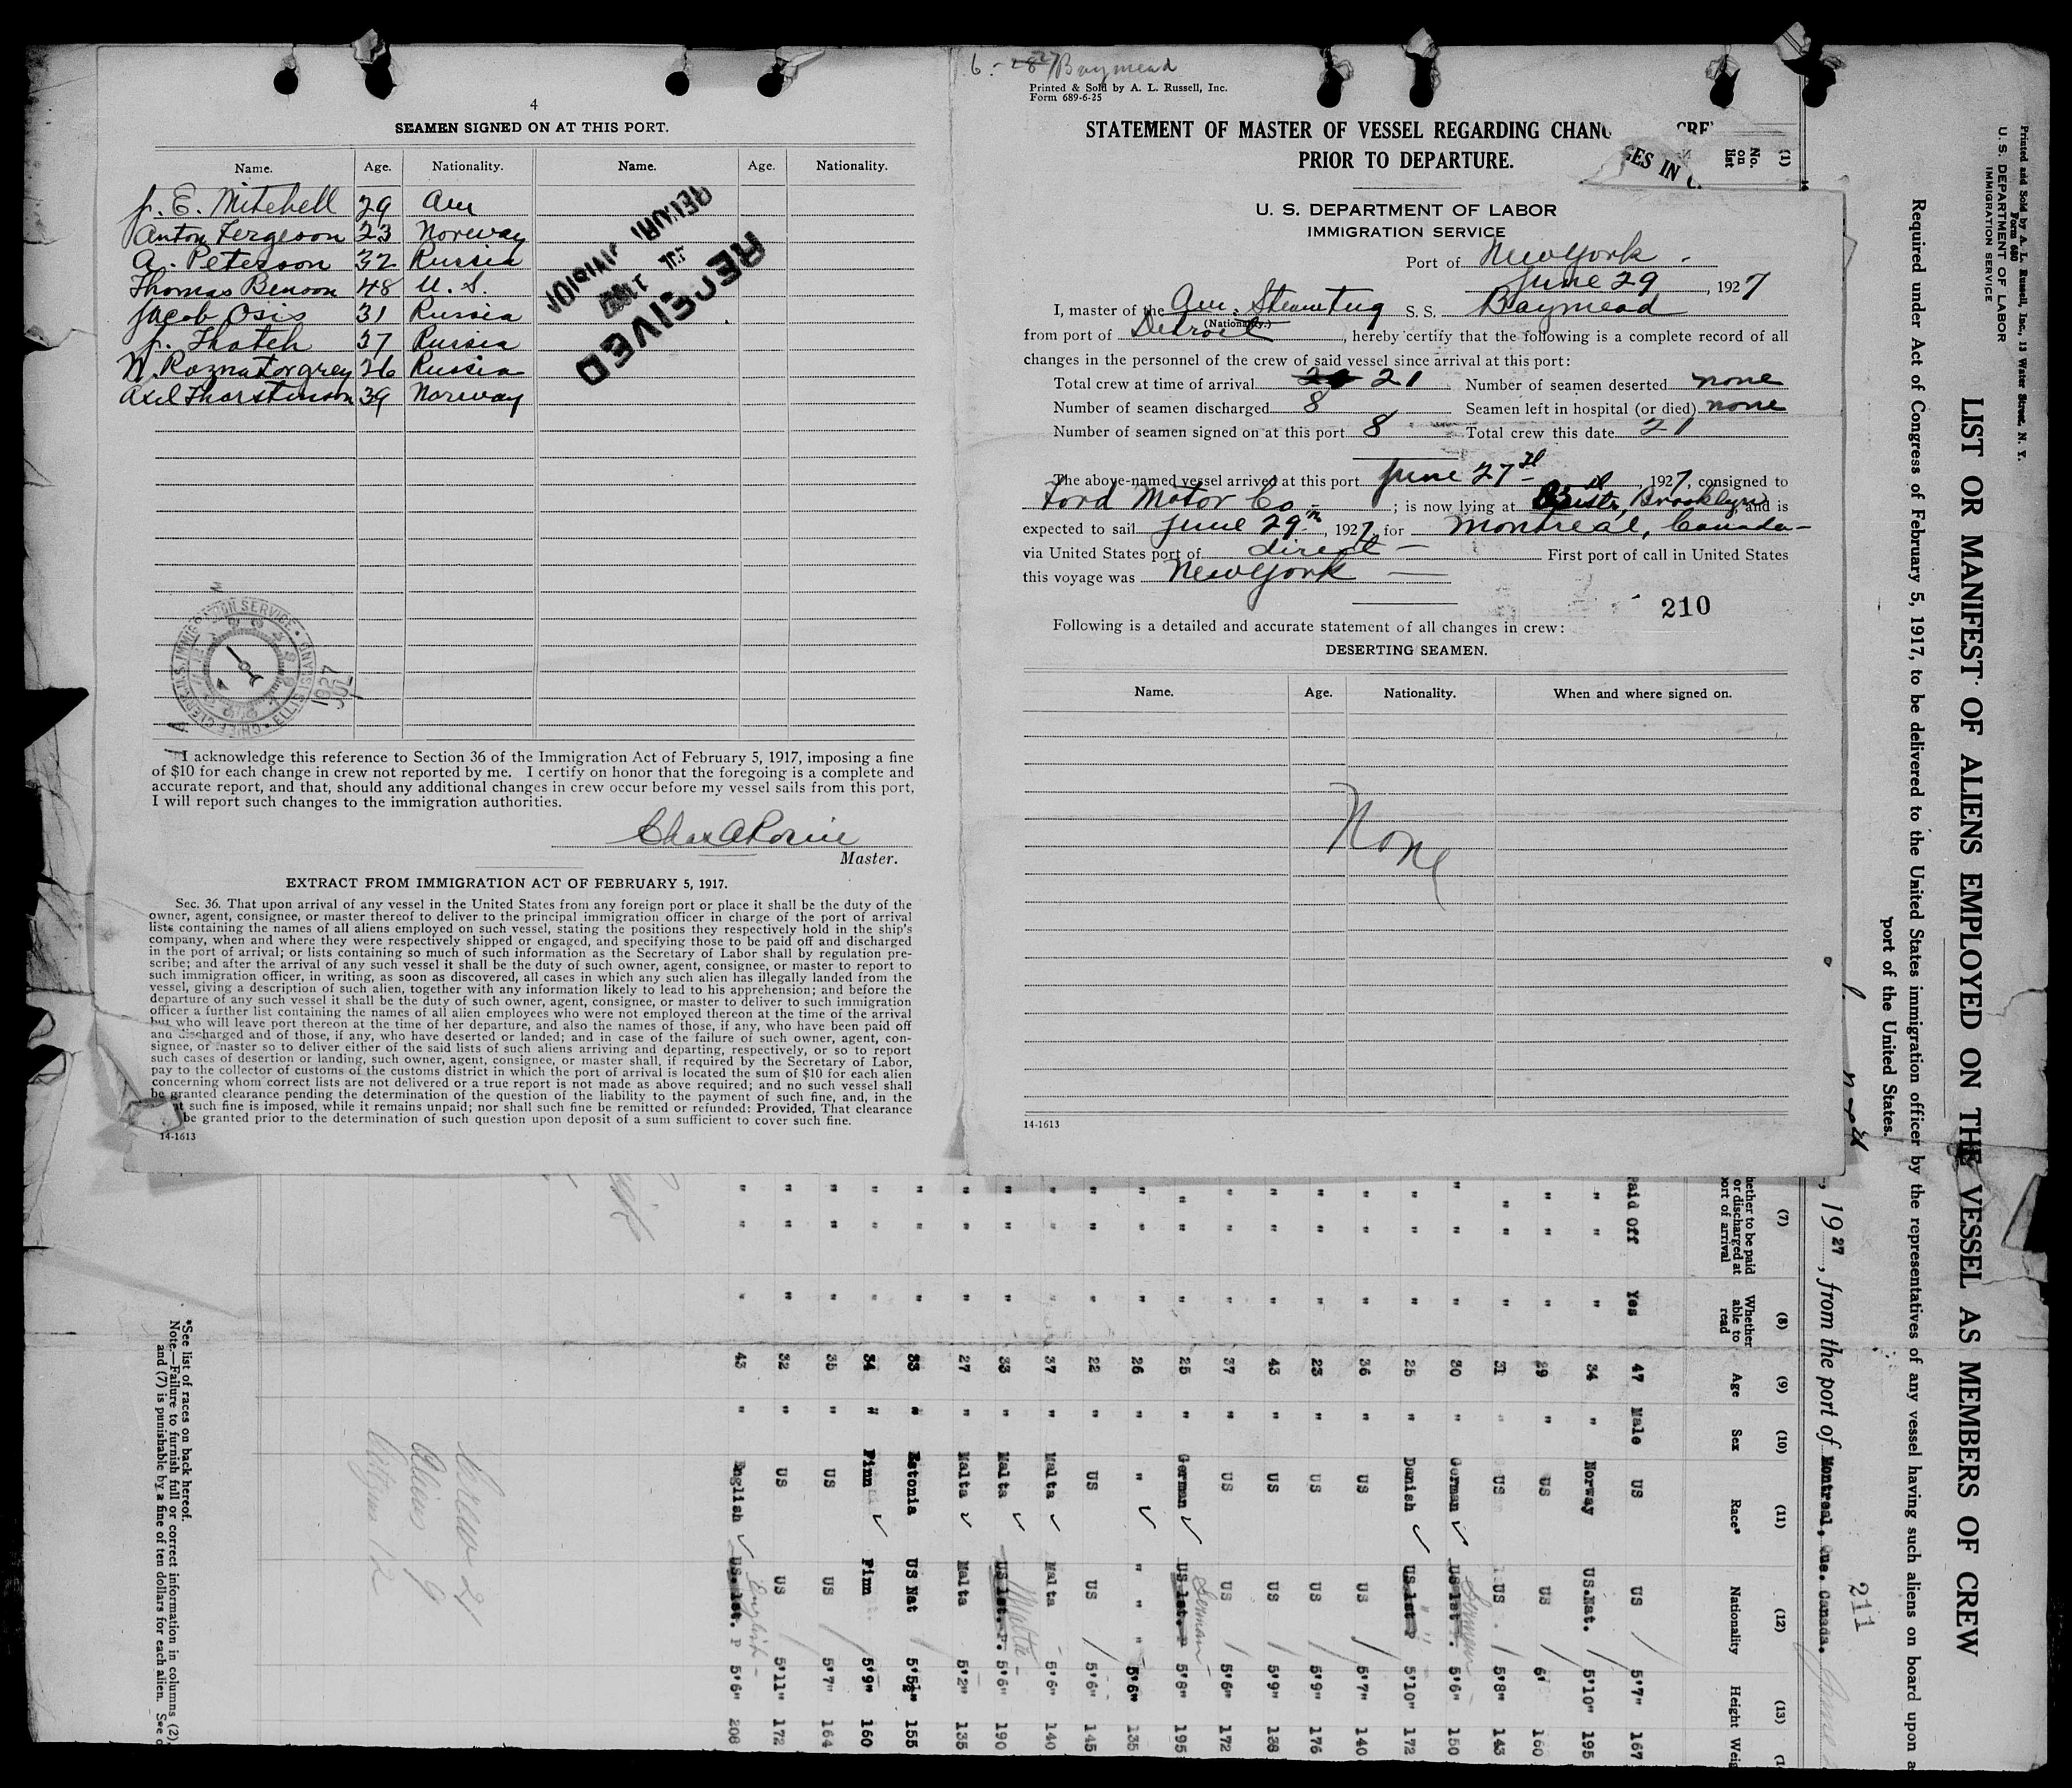 4
SEAMEN SIGNED ON AT THIS PORT.
Name. Age. Nationality. Name. Age. Nationality.
J. E. Mitchell 29 Am
Anton Fergeson 23 Norway
A. Peterson 32 Russia
Thomas Benson 48 U. S.
Jacob Osis 31 Russia
J. Thatch 37 Russia
Russia
Axel Thorstinson 39 Norway
RECEIVED
I acknowledge this reference to Section 36 of the Immigration Act of February 5, 1917, imposing a fine
of $10 for each change in crew not reported by me. I certify on honor that the foregoing is a complete and
accurate report, and that, should any additional changes in crew occur before my vessel sails from this port,
I will report such changes to the immigration authorities.
Master.
EXTRACT FROM IMMIGRATION ACT OF FEBRUARY 5, 1917.
Sec. 36. That upon arrival of any vessel in the United States from any foreign port or place it shall be the duty of the
owner, agent, consignee, or master thereof to deliver to the principal immigration officer in charge of the port of arrival
lists containing the names of all aliens employed on such vessel, stating the positions they respectively hold in the ship's
company, when and where they were respectively shipped or engaged, and specifying those to be paid off and discharged
in the port of arrival; or lists containing so much of such information as the Secretary of Labor shall by regulation pre-
scribe; and after the arrival of any such vessel it shall be the duty of such owner, agent, consignee, or master to report to
such immigration officer, in writing, as soon as discovered, all cases in which any such alien has illegally landed from the
vessel, giving a description of such alien, together with any information likely to lead to his apprehension; and before the
departure of any such vessel it shall be the duty of such owner, agent, consignee, or master to deliver to such immigration
officer a further list containing the names of all alien employees who were not employed thereon at the time of the arrival
but who will leave port thereon at the time of her departure, and also the names of those, if any, who have been paid off
and discharged and of those, if any, who have deserted or landed; and in case of the failure of such owner, agent, con-
signee, or master so to deliver either of the said lists of such aliens arriving and departing, respectively, or so to report
such cases of desertion or landing, such owner, agent, consignee, or master shall, if required by the Secretary of Labor,
pay to the collector of customs of the customs district in which the port of arrival is located the sum of $10 for each alien
concerning whom correct lists are not delivered or a true report is not made as above required; and no such vessel shall
be granted clearance pending the determination of the question of the liability to the payment of such fine, and, in the
such fine is imposed, while it remains unpaid; nor shall such fine be remitted or refunded: Provided, That clearance
be granted prior to the determination of such question upon deposit of a sum sufficient to cover such fine.
14-1613
Baymead
Printed & Sold by A. L. Russell, Inc.
Form 689-6-25
STATEMENT OF MASTER OF VESSEL REGARDING CHANGES IN CREW
PRIOR TO DEPARTURE.
U. S. DEPARTMENT OF LABOR
IMMIGRATION SERVICE
Port of New York
June 29, 1927
I, master of the Am. Steamtug S. S. Baymead
(Nationality.)
from port of Detroit, hereby certify that the following is a complete record of all
changes in the personnel of the crew of said vessel since arrival at this port:
Total crew at time of arrival 21 Number of seamen deserted none
Number of seamen discharged 8 Seamen left in hospital (or died) none
Number of seamen signed on at this port 8 Total crew this date 21
The above-named vessel arrived at this port June 27, 1927, consigned to
Ford Motor Co; is now lying at Brooklyn, and is
expected to sail June 29th, 1927, for Montreal, Canada
via United States port of direct First port of call in United States
this voyage was New York
210
Following is a detailed and accurate statement of all changes in crew:
DESERTING SEAMEN.
Name. Age. Nationality. When and where signed on.
None
14-1613
Printed and Sold by A. L. Russell, Inc., 13 Water Street, N. Y.
Form 680
U. S. DEPARTMENT OF LABOR
IMMIGRATION SERVICE
LIST OR MANIFEST OF ALIENS EMPLOYED ON THE VESSEL AS MEMBERS OF CREW
Required under Act of Congress of February 5, 1917, to be delivered to the United States immigration officer by the representatives of any vessel having such aliens on board upon a
port of the United States.
211
, 1927, from the port of Montreal, Que. Canada.
(1) (7) (8) (9) (10) (11) (12) (13)
No. on list
hether to be paid or discharged at port of arrival Whether able to read Age Sex Race* Nationality Height Weig
Paid Off Yes 47 Male US US 5'7" 167
" " " 34 " Norway US.Nat. 5'10" 195
" " " 29 " US US 6' 160
" " " 31 " US US 5'8" 143
" " " 30 " German German 5'6" 150
" " " 25 " Danish US 1st P 5'10" 172
" " " 36 " US US 5'7" 140
" " " 23 " US US 5'9" 176
" " " 43 " US US 5'9" 128
" " " 37 " US US 5'6" 172
" " " 25 " German US 1st. P German 5'8" 195
" " " 26 " " " " 5'6" 135
" " " 22 " US US 5'6" 145
" " " 37 " Malta Malta 5'6" 140
" " " 33 " Malta US 1st. P. Malta 5'6" 190
" " " 27 " Malta Malta 5'2" 135
" " " 33 " Estonia US Nat 5'5½" 155
" " " 34 " Finn Finn 5'9" 160
" " " 35 " US US 5'7" 164
" " " 32 " US US 5'11" 172
" " " 43 " English US. 1st. P English 5'6" 208
Crew 21
Aliens 9
Citizens 12
*See list of races on back hereof.
Note.—Failure to furnish full or correct information in columns (2),
and (7) is punishable by a fine of ten dollars for each alien. See